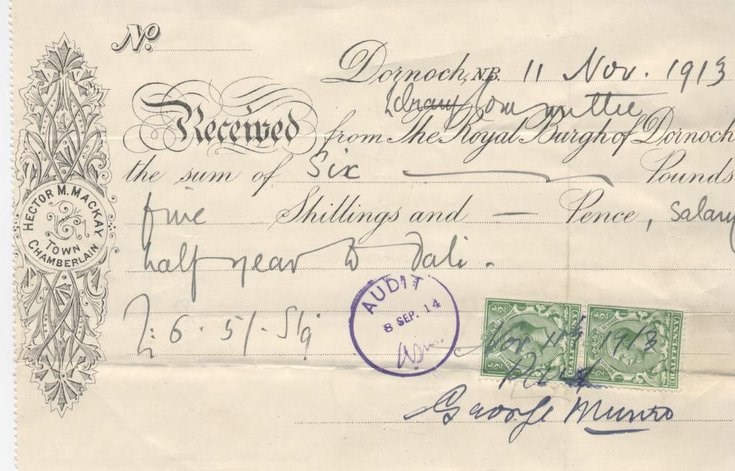 No.
Dornoch, N.B. 11 Nov. 1913
Library Committee
Received from The Royal Burgh of Dornoch
the sum of Six Pounds
five Shillings and — Pence, Salary
half year to date.
£6.5/-
HECTOR M. MACKAY
TOWN
CHAMBERLAIN
AUDIT
8 SEP. 14
HALFPENNY
HALFPENNY
Nov 11th 1913
George Munro